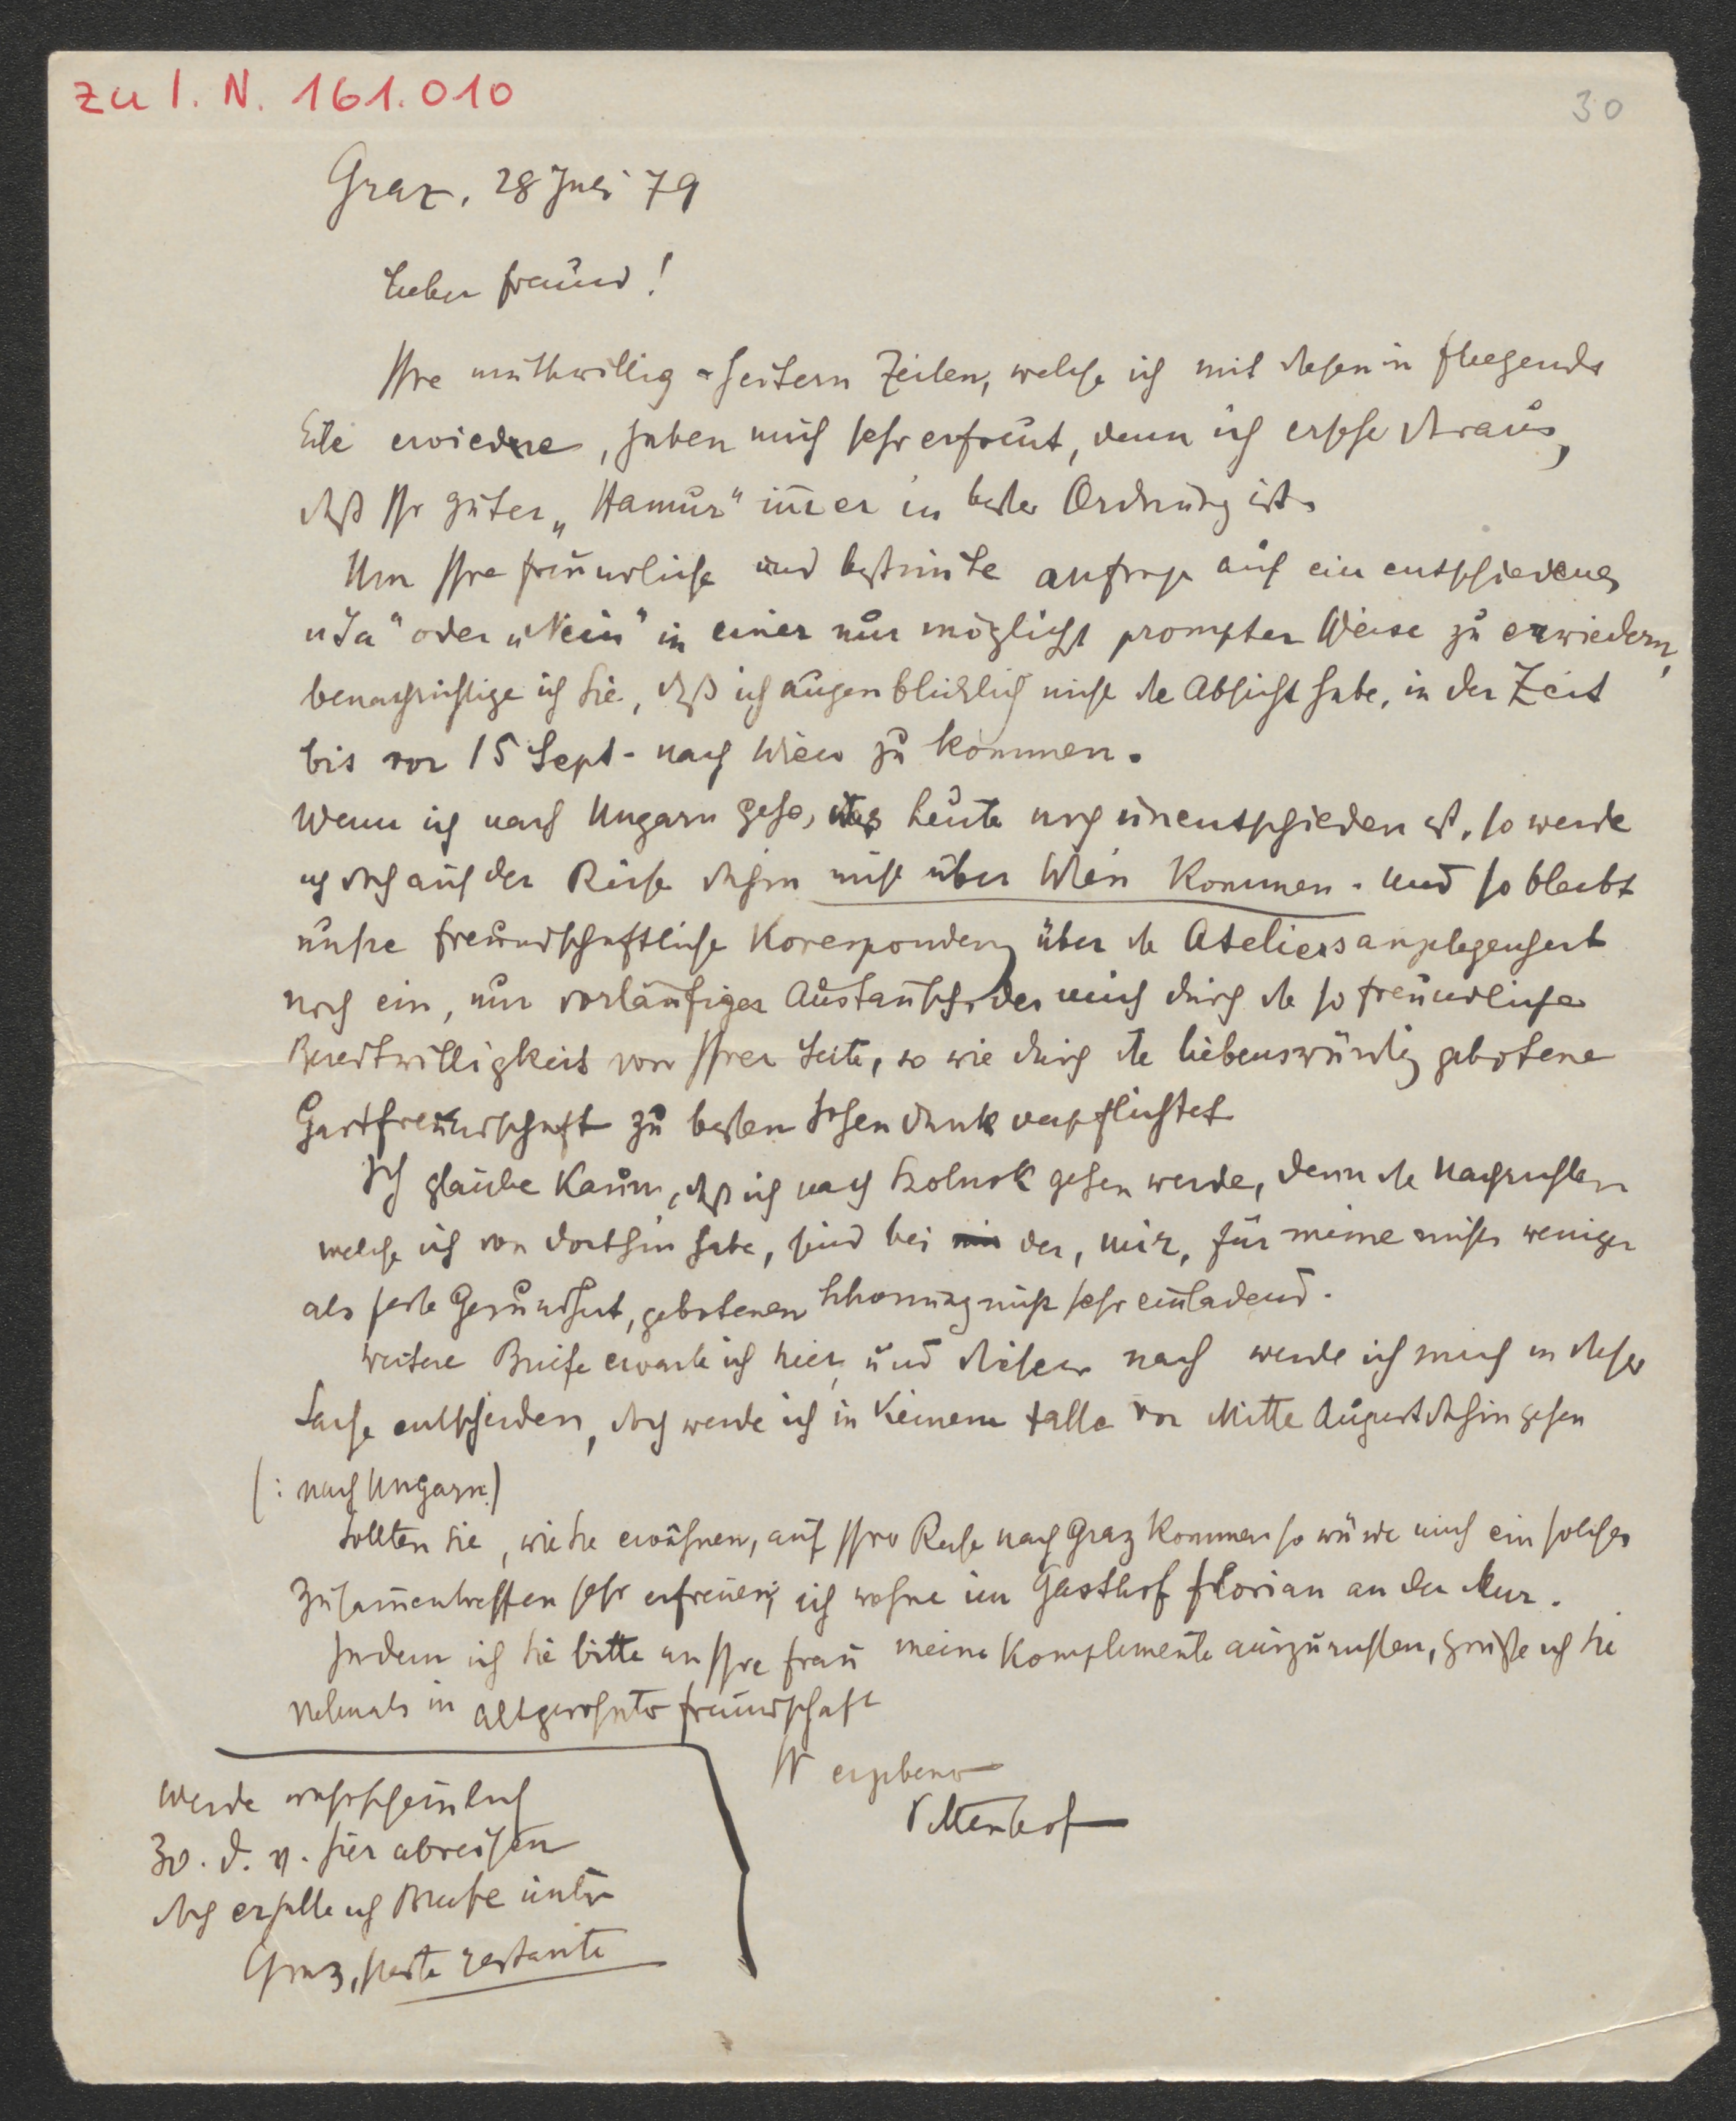 zu I. N. 161.010
30
Graz, 28 Juli 79
Lieber Freund!
Ihre muthwillig-heitern Zeilen, welche ich mit diesen in fliegender
Eile erwiedre, haben mich sehr erfreut, denn ich ersehe daraus,
daß Ihr guter „Hamur" im̄er in bester Ordnung ist.
Um Ihre freundliche und bestim̄te Anfrage auf ein entschiedenes
„Ja" oder „Nein" in einer nur möglichst prompten Weise zu erwiedern,
benachrichtige ich Sie, daß ich augenblicklich nicht die Absicht habe, in der Zeit
bis vor 15 Sept. nach Wien zu kommen.
Wenn ich nach Ungarn gehe, was heute noch unentschieden ist, so werde
ich doch auf der Reise dahin nicht über Wien kommen. Und so bleibt
unsre freundschaftliche Korespondenz über die Ateliersangelegenheit
noch ein, nur vorläufiger Austausch, der mich durch die so freundliche
Bereitwilligkeit von Ihrer Seite, so wie durch die liebenswürdig gebotene
Gastfreundschaft zu besten hohen Dank verpflichtet
Ich glaube kaum, daß ich nach Szolnok gehen werde, denn die Nachrichten
welche ich von dorthin habe, sind bei der, mir, für meine nichts weniger
als feste Gesundheit, gebotenen Wohnung nicht sehr einladend.
Weitere Briefe erwarte ich hier, und diesen nach werde ich mich in dieser
Sache entscheiden, doch werde ich in keinem Falle vor Mitte August dahin gehen
(: nach Ungarn.)
Sollten Sie, wie Sie erwähnen, auf Ihrer Reise nach Graz kommen so würde mich ein solches
Zusam̄entreffen sehr erfreuen; ich wohne im Gasthof Florian an der Mur.
Indem ich Sie bitte an Ihre Frau meine Komplimente auszurichten, grüße ich Sie
vielmals in altgewohnter Freundschaft
Ihr ergebener
Pettenkof
Werde wahrscheinlich
30. d. v. hier abreisen
doch erhalte ich Briefe unter
Graz, poste restante